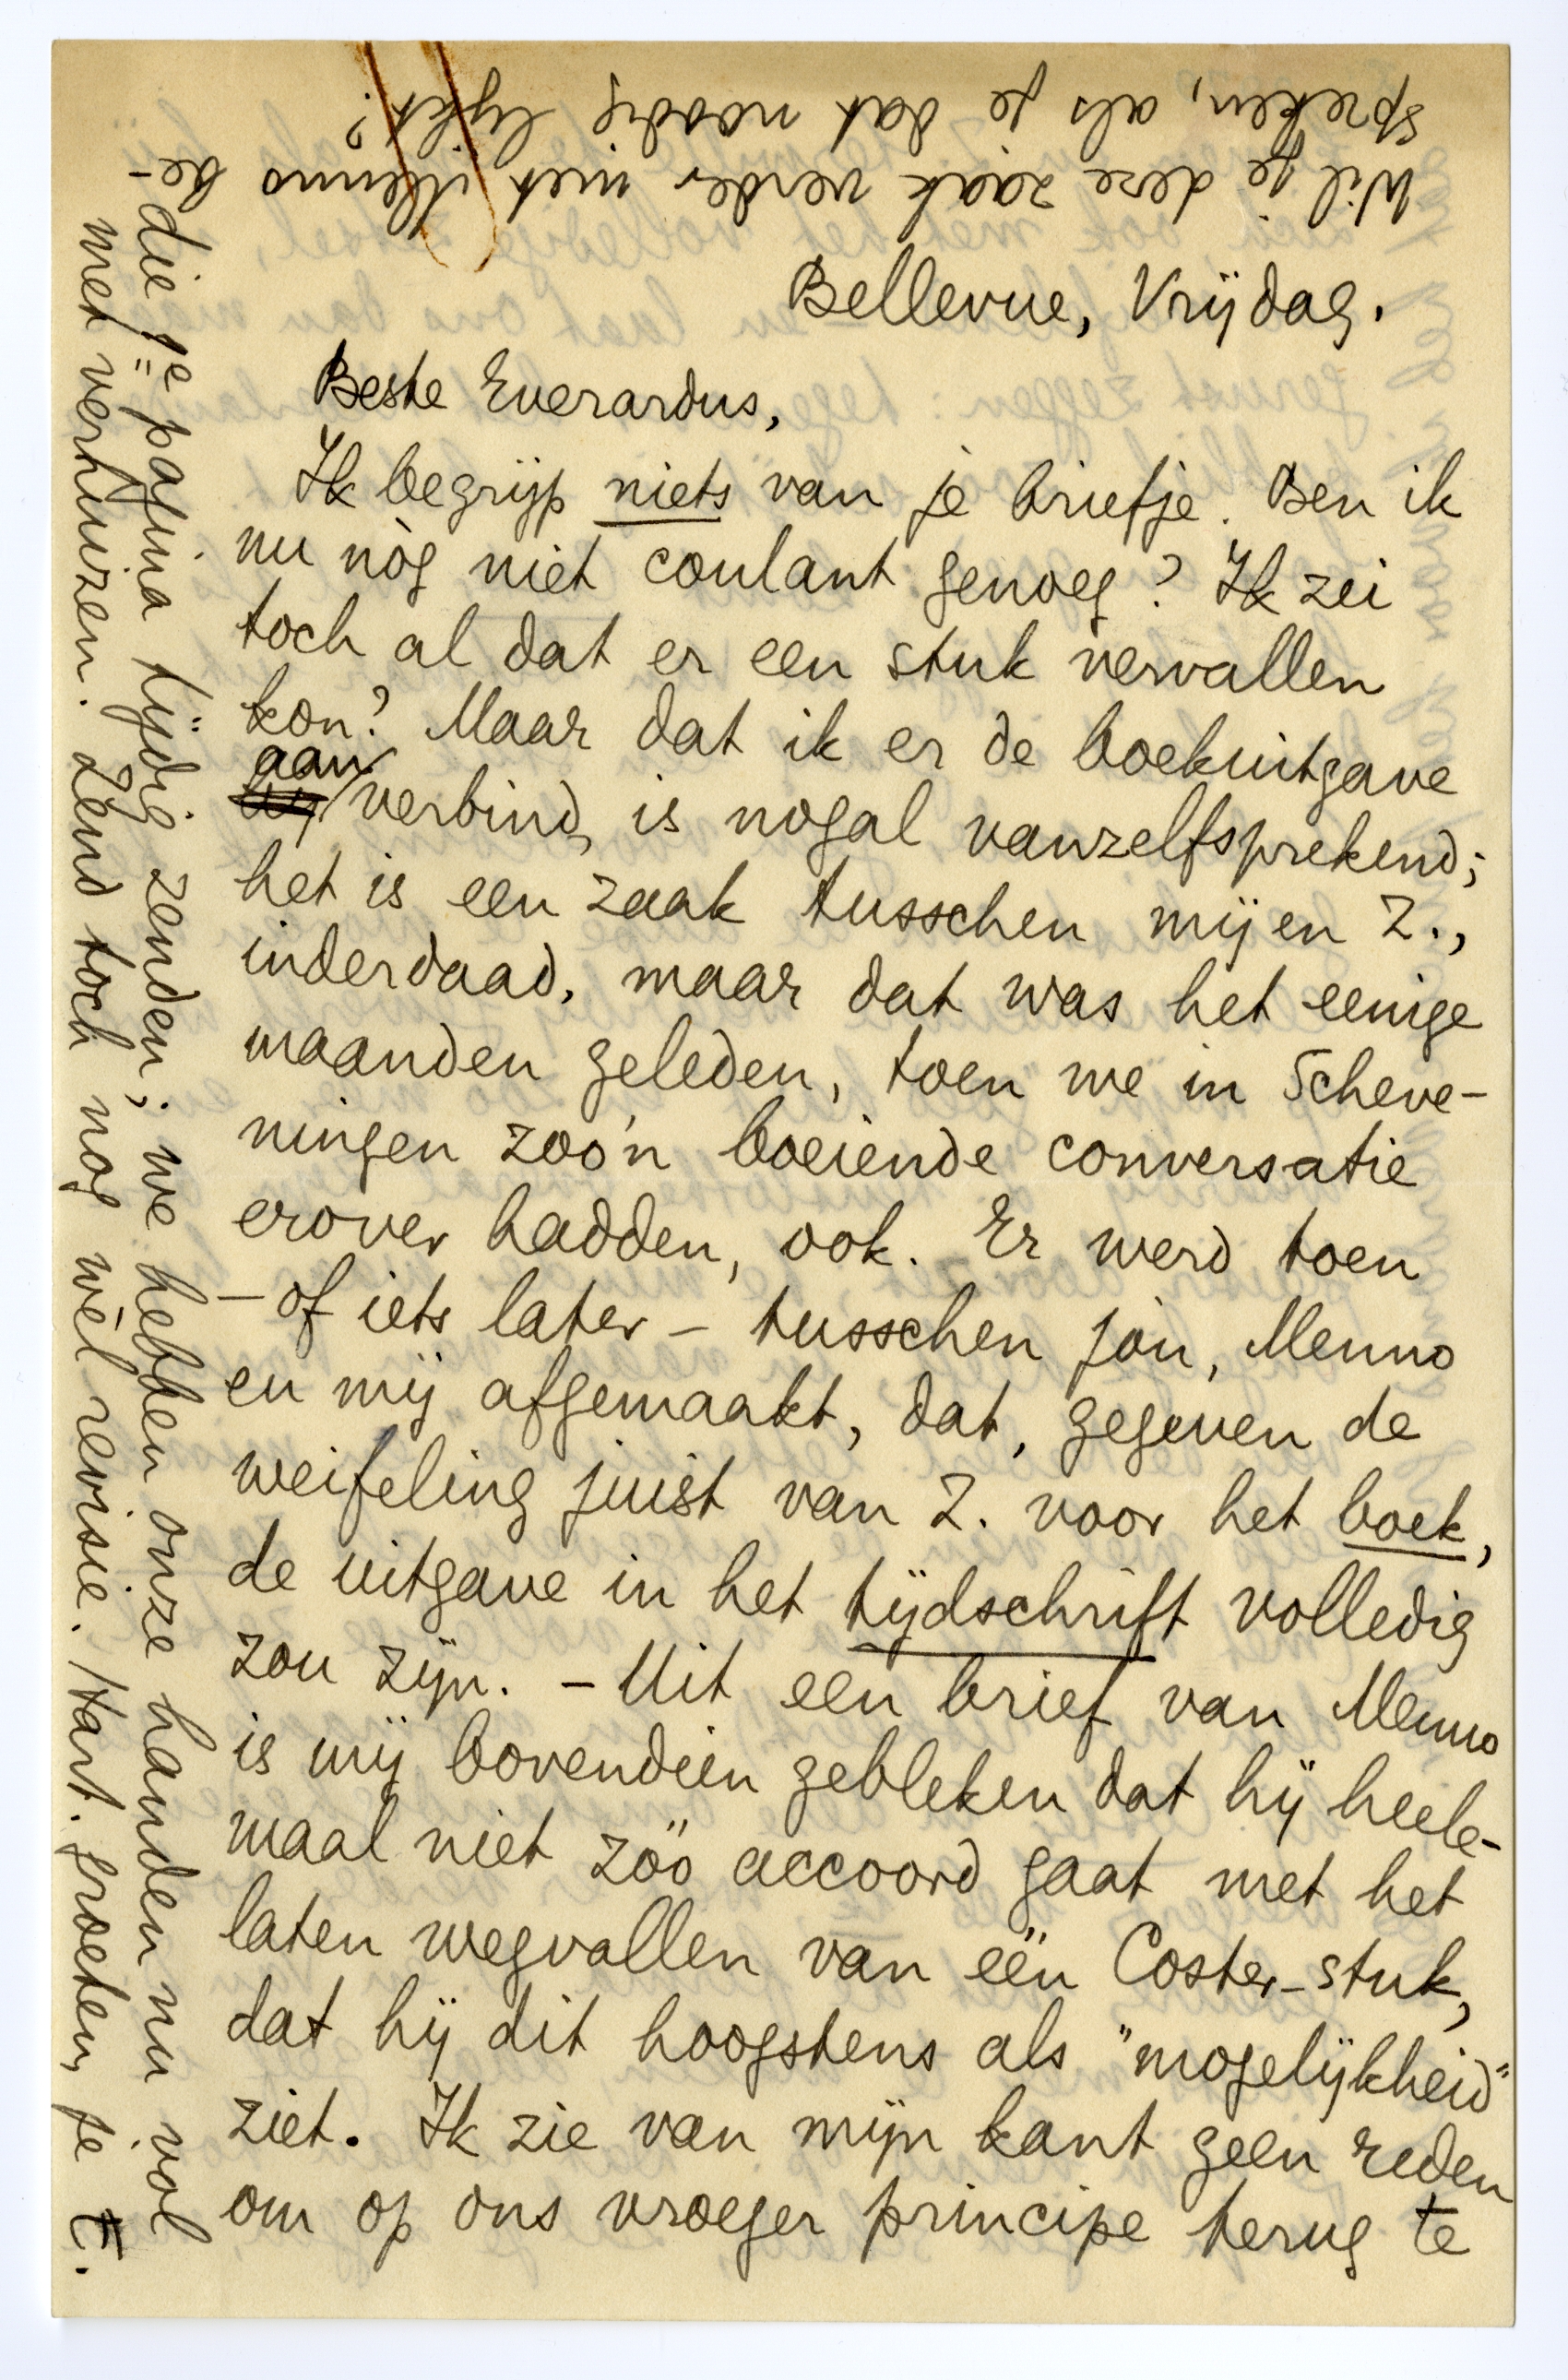 Bellevue, Vrijdag.
Beste Everardus,
Ik begrijp niets van je briefje. Ben ik
nu nòg niet coulant genoeg? Ik zei
toch al dat er een stuk vervallen
kon? Maar dat ik er de boekuitgave
aan verbind, is nogal vanzelfsprekend;
het is een zaak tusschen mij en Z.,
inderdaad, maar dat was het eenige
maanden geleden, toen we in Scheve-
ningen zoo'n boeiende conversatie
erover hadden, ook. Er werd toen
– of iets later – tusschen jou, Menno
en mij afgemaakt, dat, gegeven de
weifeling juist van Z. voor het boek,
de uitgave in het tijdschrift volledig
zou zijn. – Uit een brief van Menno
is mij bovendien gebleken dat hij heele-
maal niet zóó accoord gaat met het
laten wegvallen van één Coster-stuk,
dat hij dit hoogstens als "mogelijkheid"
ziet. Ik zie van mijn kant geen reden
om op ons vroeger principe terug te
die je pagina tijdig zenden; we hebben onze handen nu vol
met verhuizen. Zend toch nog wèl revisie. Hart. groeten, je E.
Wil je deze zaak verder met Menno be-
spreken, als je dat noodig lijkt?